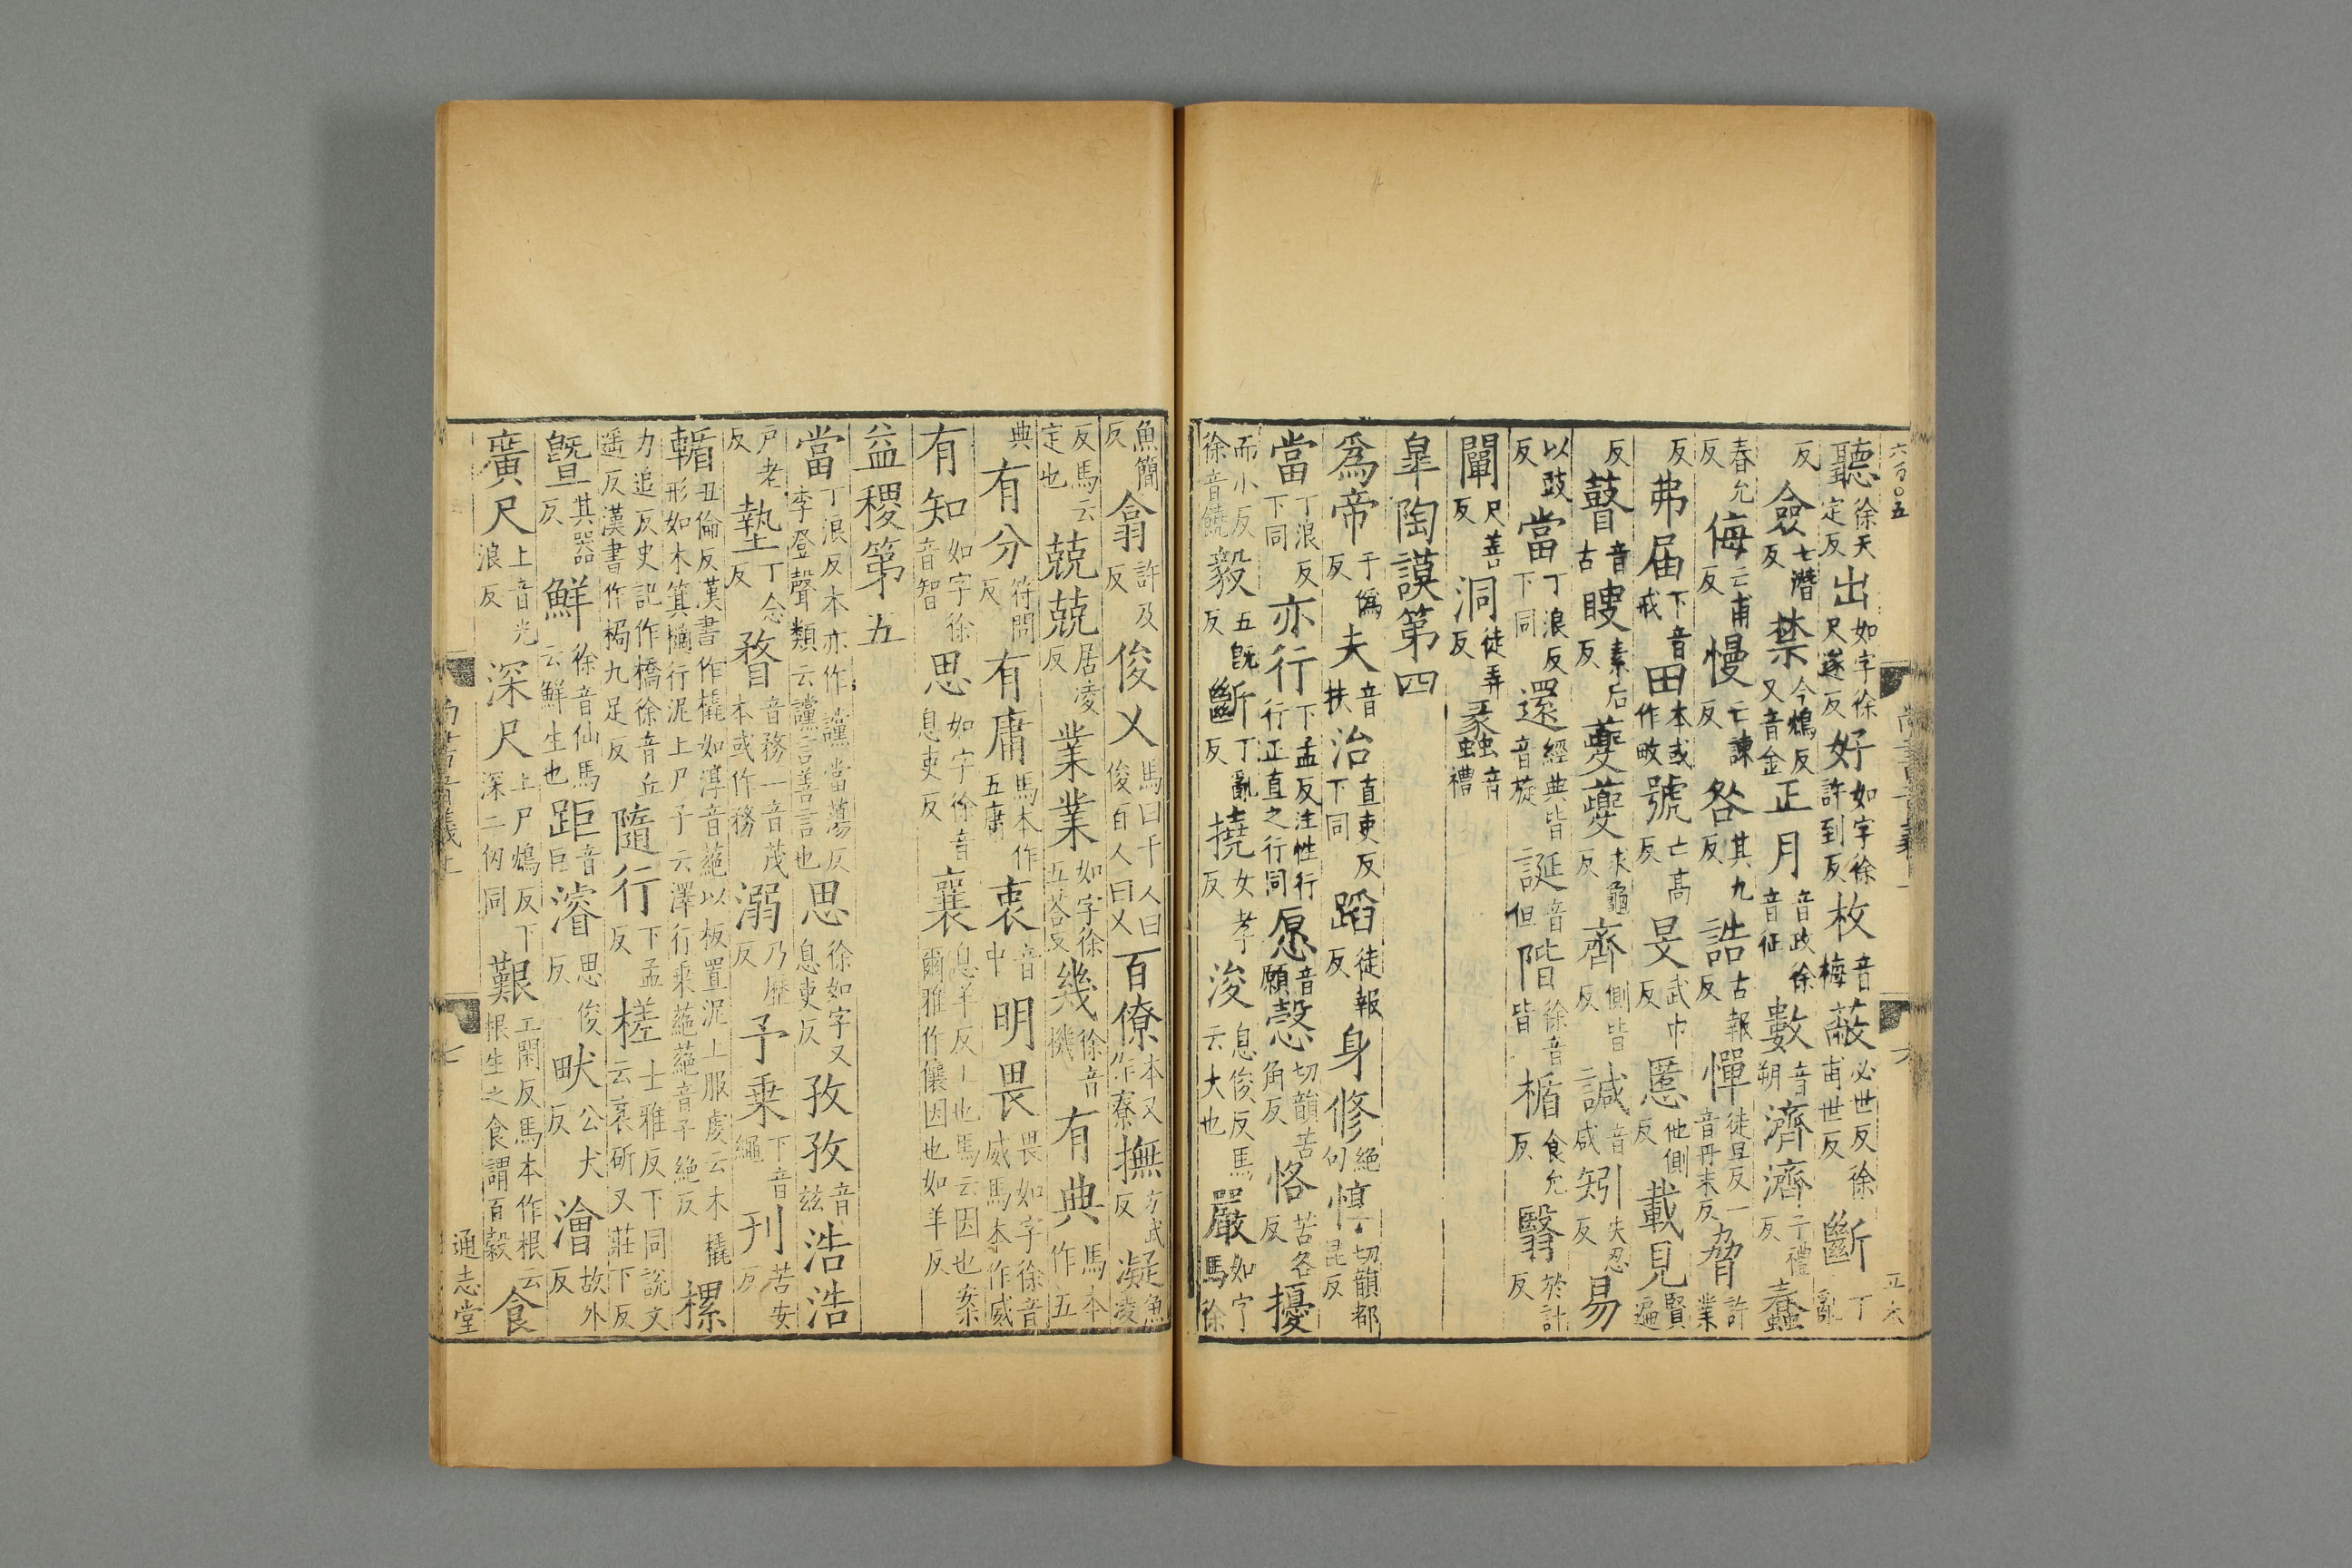 聽徐天定反出如字徐尺遂反好如字徐許到反枚音梅蔽必世反徐甫世反斷丁亂
反僉七潛反禁今鴆反又音金正月音政徐音征數音朔濟濟子禮反蠢
春允反侮亡甫反慢亡諫反咎其九反誥古報反憚徒旦反一音丹末反脅許業
反弗届下音戒田本或作畋號亡高反旻武巾反慝他側反載見賢遍
反瞽音古瞍素后反夔夔求龜反齊側皆反諴音咸矧失忍反易
以豉反當丁浪反下同還經典皆音旋誕音但階徐音皆楯食允反翳於計反
闡尺善反洞徒弄反蟊音禮
皐陶謨第四
爲帝于僞反夫音扶治直吏反下同蹈徒報反身修絕句惇切韻都昆反
當丁浪反下同亦行下孟反注性行行正直之行同愿音願慤切韻苦角反恪苦各反擾
而小反徐音饒毅五旣反斷丁亂反撓女孝反浚息俊反馬云大也嚴如字馬徐
魚簡反翕許及反俊乂馬曰千人曰俊百人曰乂百僚本又作寮撫方武反凝魚凌
反馬云定也兢兢居凌反業業如字徐五荅反幾徐音機有典馬本作五
典有分符問反有庸馬本作五庸衷音中明畏畏如字徐音威馬本作威
有知如字徐音智思如字徐音息吏反襄息羊反上也馬云因也案爾雅作儴因也如羊反
益稷第五
當丁浪反本亦作讜當蕩反李登聲類云讜言善言也思徐如字又息吏反孜孜音玆浩浩
戸老反墊丁念反瞀音務一音茂本或作務溺乃歷反予乗下音繩刋苦安反
輴丑倫反漢書作橇如淳音蕝以板置泥上服虔云木橇形如木箕擿行泥上尸子云澤行乗蕝蕝音子絕反樏
力追反史記作橋徐音丘遥反漢書作梮九足反隨行下孟反槎士雅反下同說文云衺斫又莊下反
曁其器反鮮徐音仙馬云鮮生也距音巨濬思俊反畎公犬反澮故外反
廣尺上音光浪反深尺上尸鴆反下深二仞同艱工閑反馬本作根云根生之食謂百穀食
通志堂